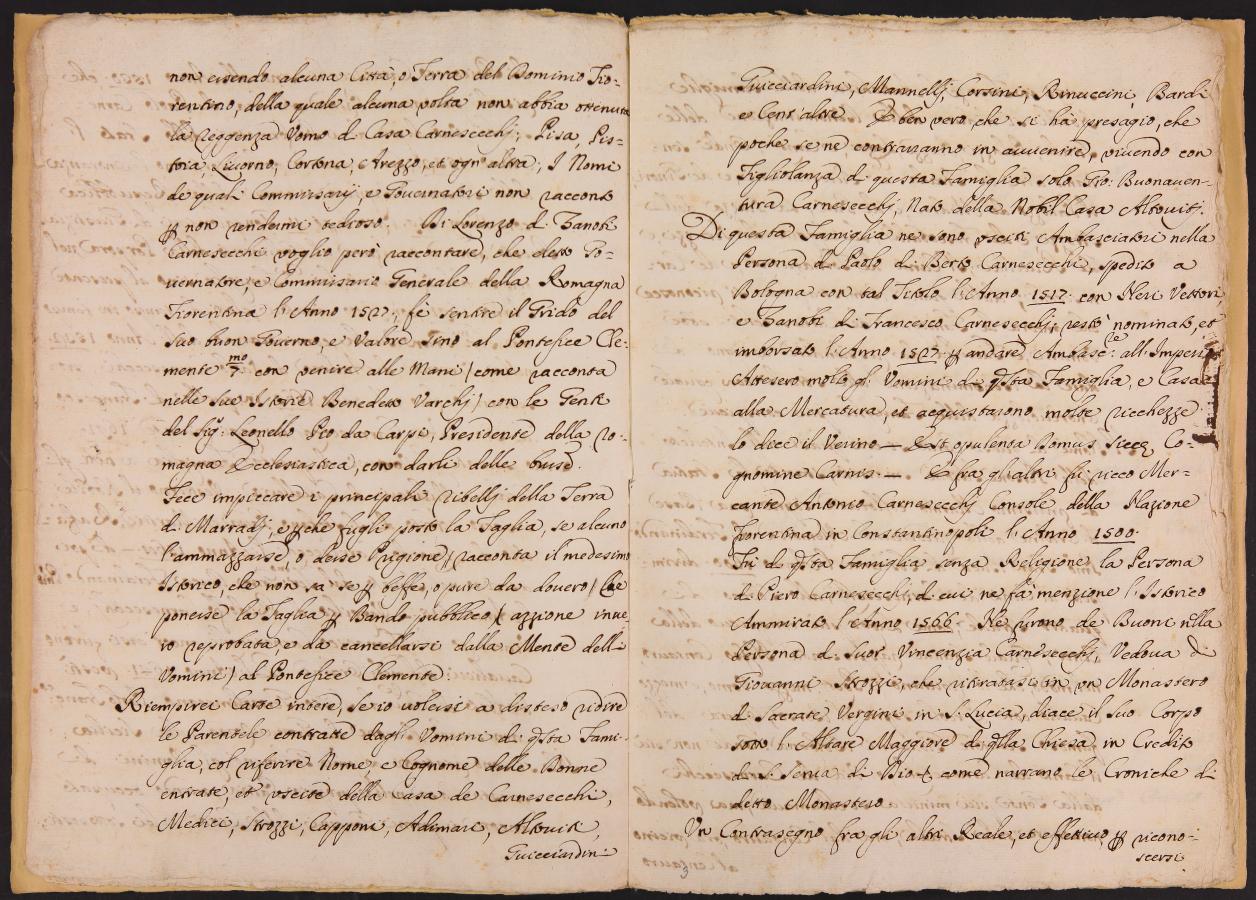 non essendo alcuna Città, o Terra del Dominio Fio-
rentino, della quale alcuna volta non abbia ottenuta
la reggenza Vomo d Casa Carnesecchj; Pisa, Pis-
toia, Livorno, Cortona, e Arezzo, et ogn' altra; I Nomi
de quali Commissarij, e Governatori non racconto
ꝑ non rendermi tedioso. Di Lorenzo d Zanobi
Carnesecchi voglio però raccontare, che eletto Go-
vernatore, e Commissario Generale della Romagna
Fiorentina l'Anno 1527, fè sentire il Grido del
suo buon Governo, e Valore sino al Pontefice Cle-
mente 7.mo con venire alle Mani (come racconta
nelle sue Istorie Benedetto Varchj) con le Genti
del Sig.r Leonello Pio da Carpi, Presidente della Ro-
magna Ecclesiastica, con darli delle busse.
Fece impiccare i principali ribellj della Terra
d Marradj, e ꝑche fugli posto la Taglia, se alcuno
l'ammazzasse, o desse Prigione, (racconta il medesimo
Istorico, che non sa se ꝑ beffe, o pure da dovero)
ponesse la Taglia ꝑ Bando pubblico (azzione inve-
ro reprobata, e da cancellarsi dalla Mente delli
Vomini) al Pontefice Clemente.
Riempirei Carte intere, se io volessi a disteso ridire
le Parentele contratte dagli Vomini d qsta Fami-
glia, col riferire Nome, e Cognome delle Donne
entrate, et uscite della Casa de Carnesecchi,
Medici, Strozzi, Capponi, Adimari, Altoviti,
Guicciardini
Guicciardini, Mannellj, Corsini, Rinuccini, Bardi
e Cent'altre. E ben vero, che si ha presagio, che
poche se ne contrarranno in avvenire, vivendo con
Figliolanza d questa Famiglia solo Gio: Buonaven-
tura Carnesecchj, Nato della Nobil Casa Altovitj.
Di questa Famiglia ne sono usciti Ambasciatori nella
Persona d Paolo d Berto Carnesecchi, spedito a
Bologna con tal Titolo l'Anno 1517. con Neri Vettori
e Zanobi di Francesco Carnesecchj, restò nominato, et
imborsato l'Anno 1527 ꝑ andare Ambasc:re all'Imperio
Attesero molto gl' Vomini d qsta Famiglia, e Casa
alla Mercatura, et acquistarono molte ricchezze
lo dice il Verino — Est opulenta Domus siccę Co-
gnomine Carnis. — E fra gli altri fu ricco Mer-
cante Antonio Carnesecchj Console della Nazione
Fiorentina in Constantinopoli l'Anno 1500.
Fu d qsta Famiglia senza Religione la Persona
d Piero Carnesecchj, d cui ne fà menzione l'Istorico
Ammirato l'Anno 1566. Ne furono de Buoni nella
Persona d Suor Vincenzia Carnesecchj, Vedova d
Giovanni Strozzi, che ritiratasi in un Monastero
d Sacrate Vergini in S. Lucia, diace il suo Corpo
sotto l'Altare Maggiore d qlla Chiesa in Credito
d S. Serva di Dio, come narrano le Croniche di
detto Monastero.
Un Contrasegno fra gli altri Reale, et effettivo ꝑ ricono-
scersi
3